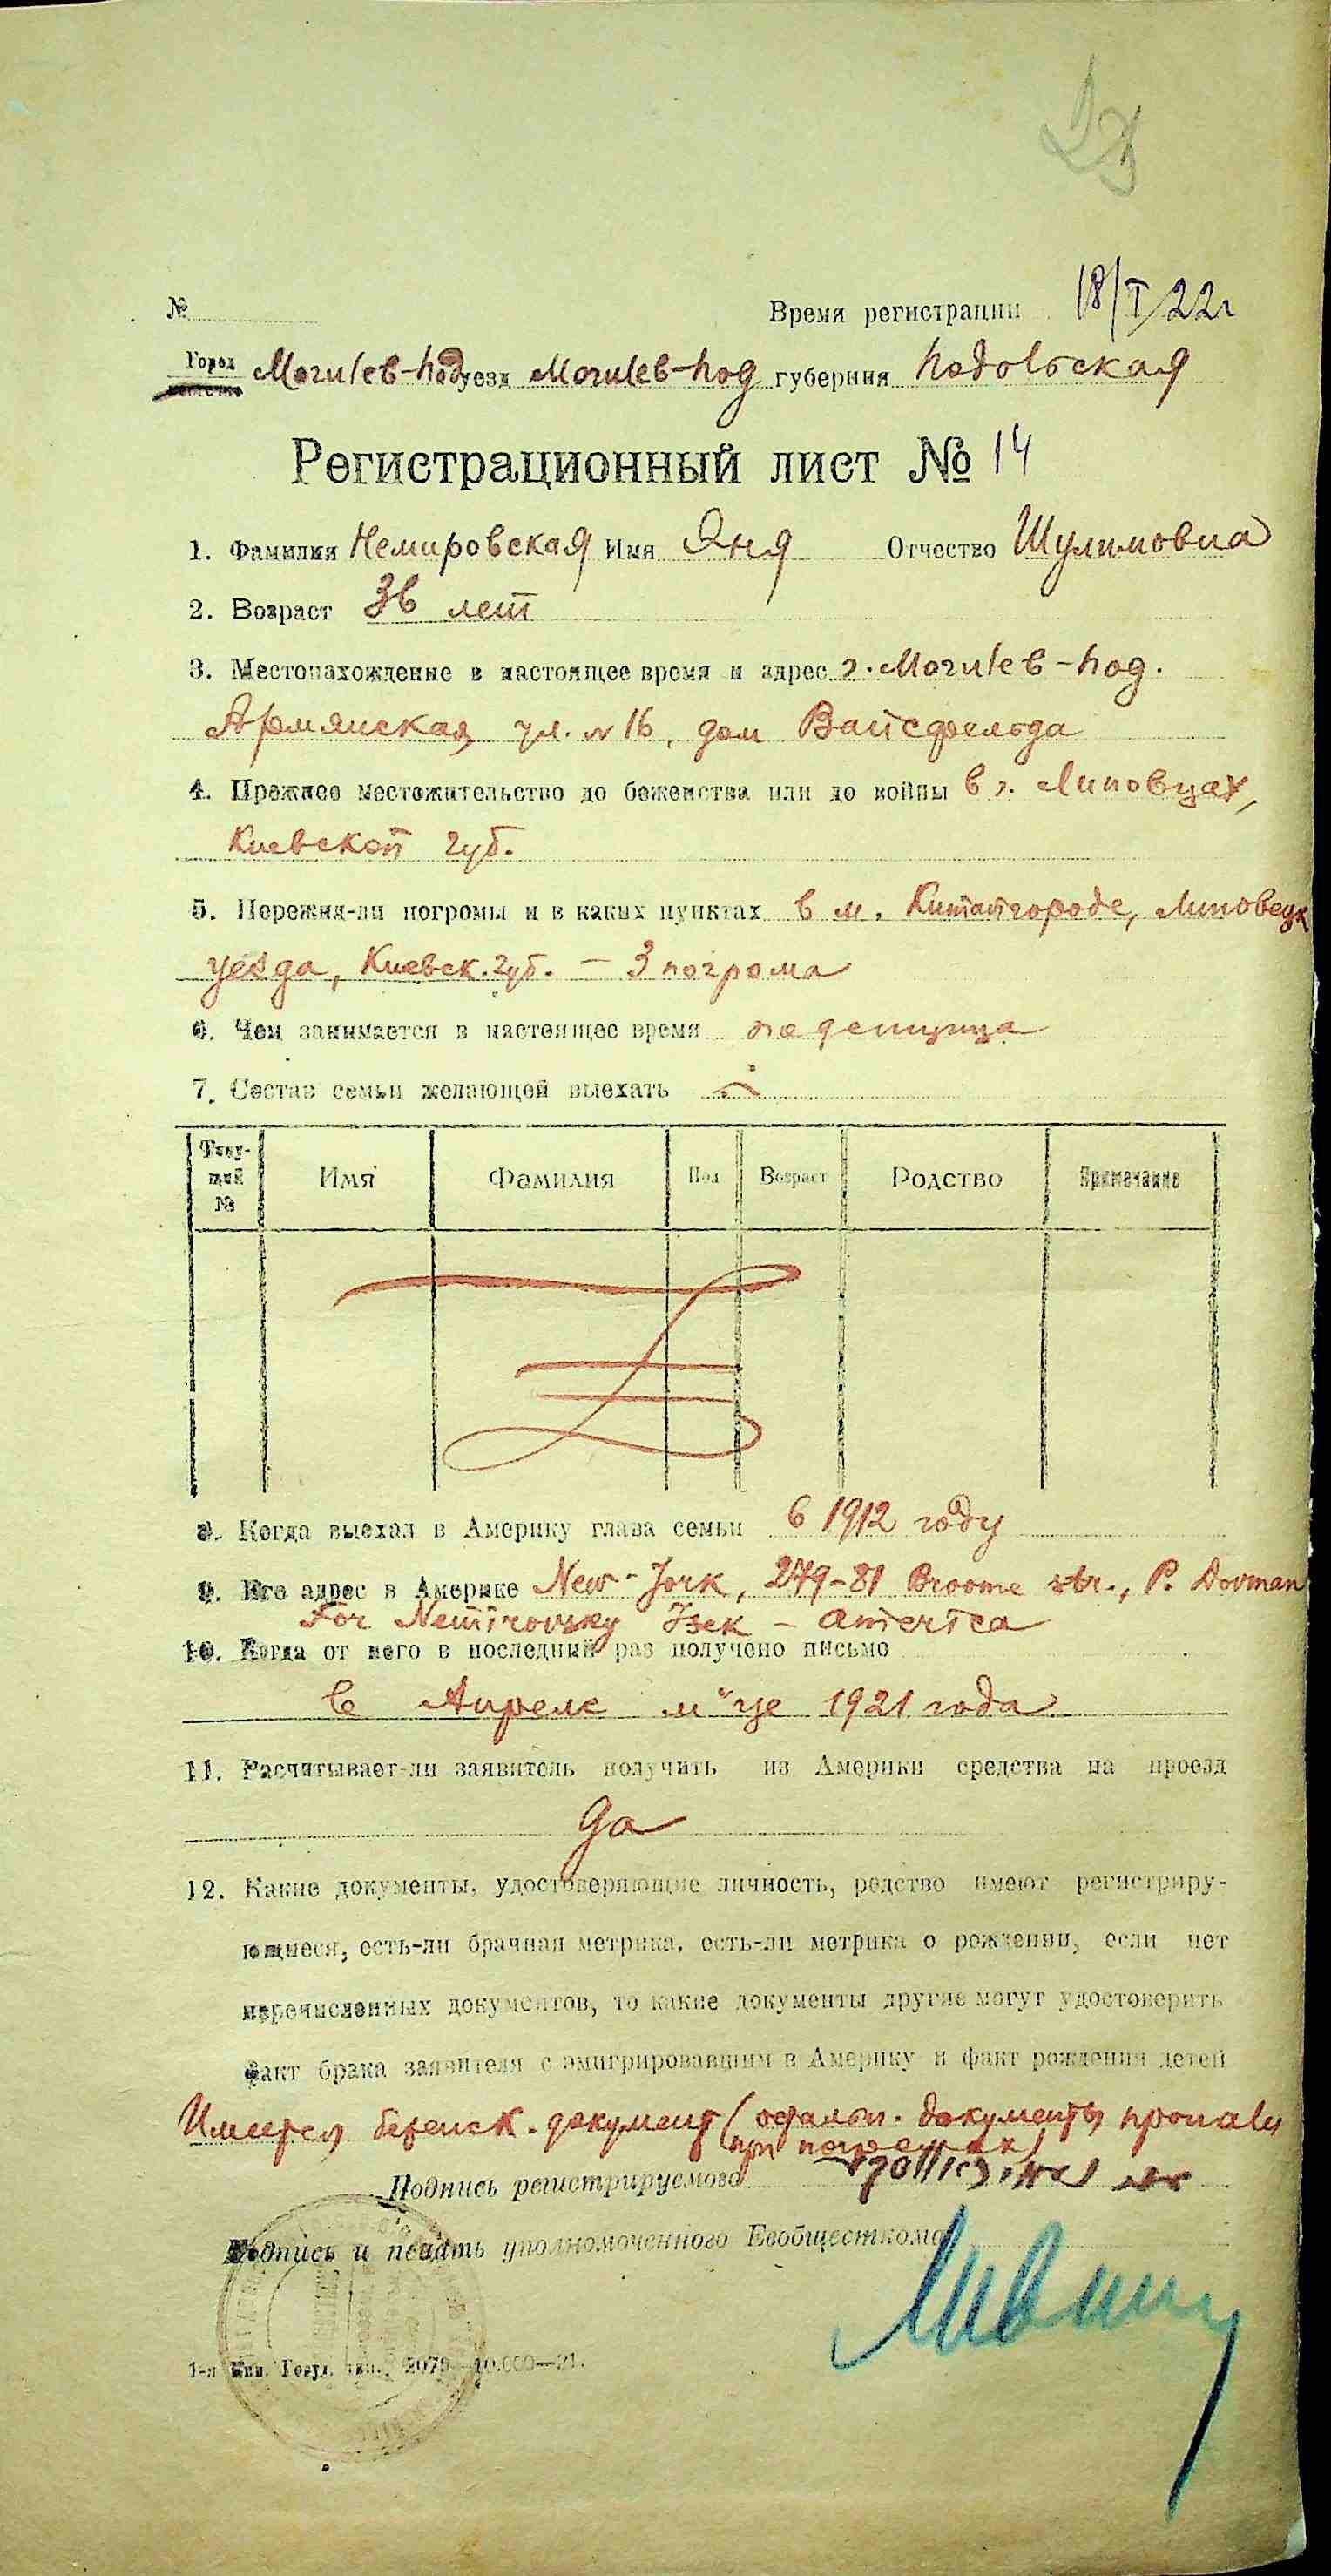 № Время регистрации 18/I/22г
Город Могилев-Под уезд Могилев-Под губерния Подольская
местечко
Регистрационный лист № 14
1. Фамилия Немировская Имя Яня Отчество Шулимовна
2. Возраст 36 лет
3. Местонахождение в настоящее время и адрес г. Могилев-Под.
Армянская ул. № 16, дом Вайсфельда
4. Прежнее местожительство до беженства или до войны в г. Липовцах,
Киевской губ.
5. Пережил-ли погромы и в каких пунктах в м. Китайгороде, Липовецк
уезда, Киевск. губ. — 3 погрома
6. Чем занимается в настоящее время поденщица
7. Состав семьи желающей выехать
Теку-
щий
№
Имя Фамилия Пол Возраст Родство Примечание
8. Когда выехал в Америку глава семьи в 1912 году
9. Его адрес в Америке New-Jork, 279-81 Broome str., P. Dorman
For Nemirovsky Isek - America
10. Когда от него в последний раз получено письмо
в Апреле м-це 1921 года
11. Расчитывает-ли заявитель получить из Америки средства на проезд
Да
12. Какие документы, удостоверяющие личность, родство имеют регистриру-
ющиеся, есть-ли брачная метрика, есть-ли метрика о рождении, если нет
перечисленных документов, то какие документы другие могут удостоверить
факт брака заявителя с эмигрировавшим в Америку и факт рождения детей
Имеется беженск. документ (остальн. документы пропали
при погромах)
Подпись регистрируемого
Подпись и печать уполномоченного Евобщесткома
1-я Вин. Госуд. тип., 2079—10.000—21.